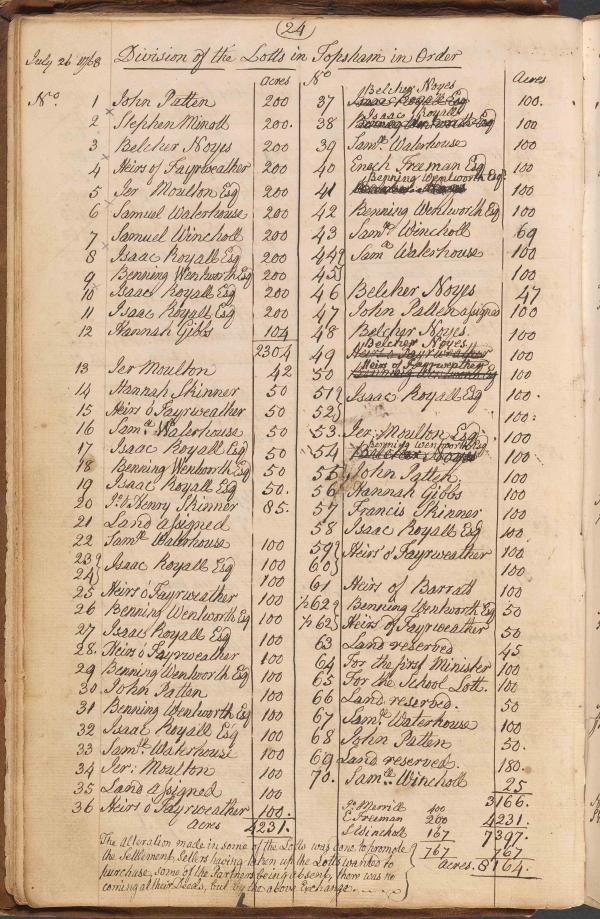 24
July 26 1768 Division of the Lotts in Topsham in Order
acres
No. 1 John Patten 200
2 Stephen Minott 200.
3 Belcher Noyes 200
4 Heirs of Fayrweather 200
5 Jer Moulton Esq 200
6 Samuel Waterhouse 200
7 Samuel Wincholl 200
8 Isaac Royall Esq 200
9 Benning Wentworth Esq 200
10 Isaac Royall Esq 200
11 Isaac Royall Esq 200
12 Hannah Gibbs 104
2304
13 Jer Moulton 42
14 Hannah Skinner 50
15 Heirs o Fayrweather 50
16 Saml. Waterhouse 50
17 Isaac Royall Esq 50
18 Benning Wenworth Esq 50
19 Isaac Royall Esq 50.
20 Henry Skinner 85.
21 Land assigned
22 Samll Waterhouse 100
23 Isaac Royall Esq 100
24 100
25 Heirs o Fayrweather 100
26 Benning Wentworth Esq 100
27 Isaac Royall Esq 100
28. Heirs o Fayrweather 100
29 Benning Wentworth Esq 100
30 John Patten 100
31 Benning Wentworth Esq 100
32 Isaac Royall Esq 100
33 Samll Waterhouse 100
34 Jer: Moulton 100
35 Land assigned 100
36 Heirs o Fayrweather 100.
acres 4231.
No Acres
Belcher Noyes
37 Isaac Royall Esq 100.
Isaac Royall
38 Benning Wentworth Esq 100
39 Saml. Waterhouse 100
40 Enoch Freeman Esq 100
Benning Wentworth Esq
41 Belcher Noyes 100
42 Benning Wentworth Esq 100
43 Saml. Wincholl 69
44 Saml Waterhouse 100
45 100
46 Belcher Noyes 47
47 John Patten assigned 100
48 Belcher Noyes 100
Belcher Noyes
49 Heirs o Fayrweather 100
Heirs of Fayrweather
50 Benning Wentworth Esq 100
51 Isaac Royall Esq 100.
52 100:
53. Jer: Moulton Esq 100
Benning Wentworth Esq
54 Belcher Noyes 100
55 John Patten 100
56 Hannah Gibbs 100
57 Francis Skinner 100
58 Isaac Royall Esq 100
59 Heirs o Fayrweather 100
60 100
61 Heirs of Barratt 100
½ 62 Benning Wentworth Esq 50
½ 62 Heirs of Fayrweather 50
63 Land reserved 45
64 For the first Minister 100
65 For the School Lott. 100
66 Land reserved. 50
67 Saml. Waterhouse 100
68 John Patten 50.
69 Land reserved. 180.
70. Samll Wincholl 25
3166.
Merrill 400
E Freeman 200 4231.
S Wincholl 167 7397.
767 767
acres. 8164.
The alteration made in some of the Lotts was done to promote
the Settlement, Setlers having taken up the Lotts wanted to
purchase, some of the Partners being absent, there was no
coming at their Deeds, but by the above Exchange